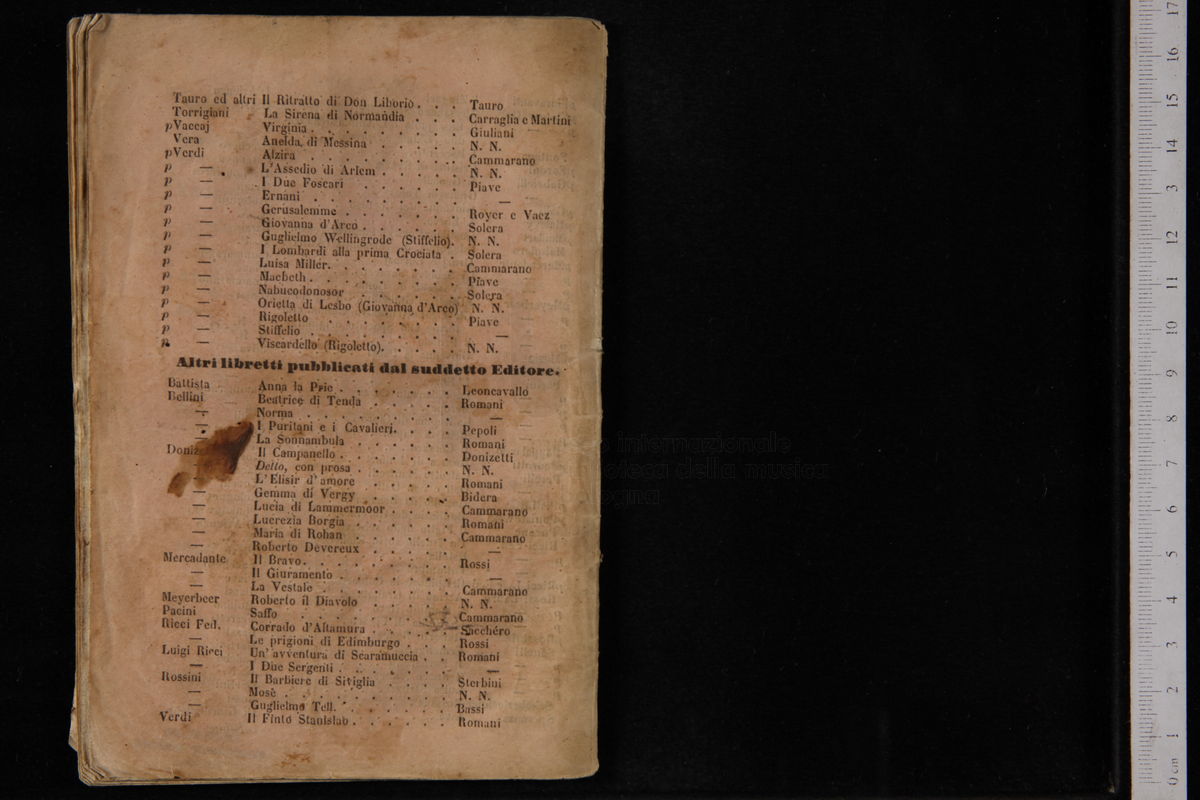 Tauro ed altri Il Ritratto di Don Liborio . . . Tauro
Torrigiani La Sirena di Normandia . . . Carraglia e Martini
p Vaccaj Virginia . . . . . . . . Giuliani
Vera Anelda di Messina . . . . . N. N.
p Verdi Alzira . . . . . . . . Cammarano
p — L'Assedio di Arlem . . . . . N. N.
p — I Due Foscari . . . . . . Piave
p — Ernani . . . . . . . . —
p — Gerusalemme . . . . . . . Royer e Vaez
p — Giovanna d'Arco . . . . . . Solera
p — Guglielmo Wellingrode (Stiffelio). N. N.
p — I Lombardi alla prima Crociata . Solera
p — Luisa Miller. . . . . . . . Cammarano
p — Macbeth . . . . . . . . Piave
p — Nabucodonosor . . . . . . Solera
p — Orietta di Lesbo (Giovanna d'Arco) N. N.
p — Rigoletto . . . . . . . Piave
p — Stiffelio . . . . . . . . —
p — Viscardello (Rigoletto). . . . . N. N.
Altri libretti pubblicati dal suddetto Editore.
Battista Anna la Prie . . . . . . . Leoncavallo
Bellini Beatrice di Tenda . . . . . Romani
— Norma . . . . . . . . —
— I Puritani e i Cavalieri. . . . Pepoli
La Sonnambula . . . . . Romani
Doniz Il Campanello . . . . . . Donizetti
Detto, con prosa . . . . . . N. N.
L'Elisir d'amore . . . . . Romani
— Gemma di Vergy . . . . . Bidera
— Lucia di Lammermoor . . . . Cammarano
— Lucrezia Borgia . . . . . . Romani
— Maria di Rohan . . . . . . Cammarano
— Roberto Devereux . . . . . —
Mercadante Il Bravo. . . . . . . . . Rossi
— Il Giuramento . . . . . . . —
— La Vestale . . . . . . . . Cammarano
Meyerbeer Roberto il Diavolo . . . . . N. N.
Pacini Saffo . . . . . . . Cammarano
Ricci Fed. Corrado d'Altamura . . . . Sacchéro
— Le prigioni di Edimburgo . . . Rossi
Luigi Ricci Un' avventura di Scaramuccia . . Romani
— I Due Sergenti . . . . . . . —
Rossini Il Barbiere di Siviglia . . . . Sterbini
— Mosè . . . . . . . . . N. N.
— Guglielmo Tell. . . . . . . Bassi
Verdi Il Finto Stanislao . . . . . . Romani
internazionale
della musica
0 cm 1 2 3 4 5 6 7 8 9 10 11 12 13 14 15 16 17